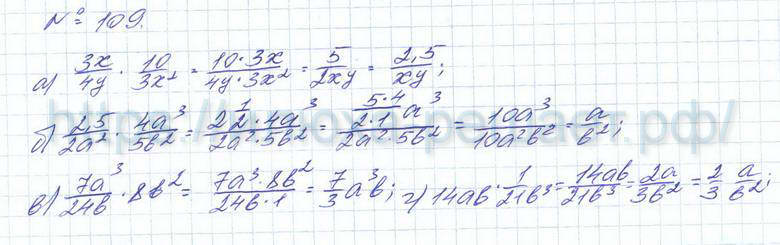 № 109.
а) 3x/4y · 10/3x² = 10·3x/4y·3x² = 5/2xy = 2,5/xy;
б) 2,5/2a² · 4a³/5b² = 2 1/2·4a³/2a²·5b² = (5·4/2·1)a³/2a²·5b² = 10a³/10a²b² = a/b²;
в) 7a³/24b · 8b² = 7a³·8b²/24b·1 = 7/3 a³b; г) 14ab · 1/21b³ = 14ab/21b³ = 2a/3b² = 2/3 a/b²;